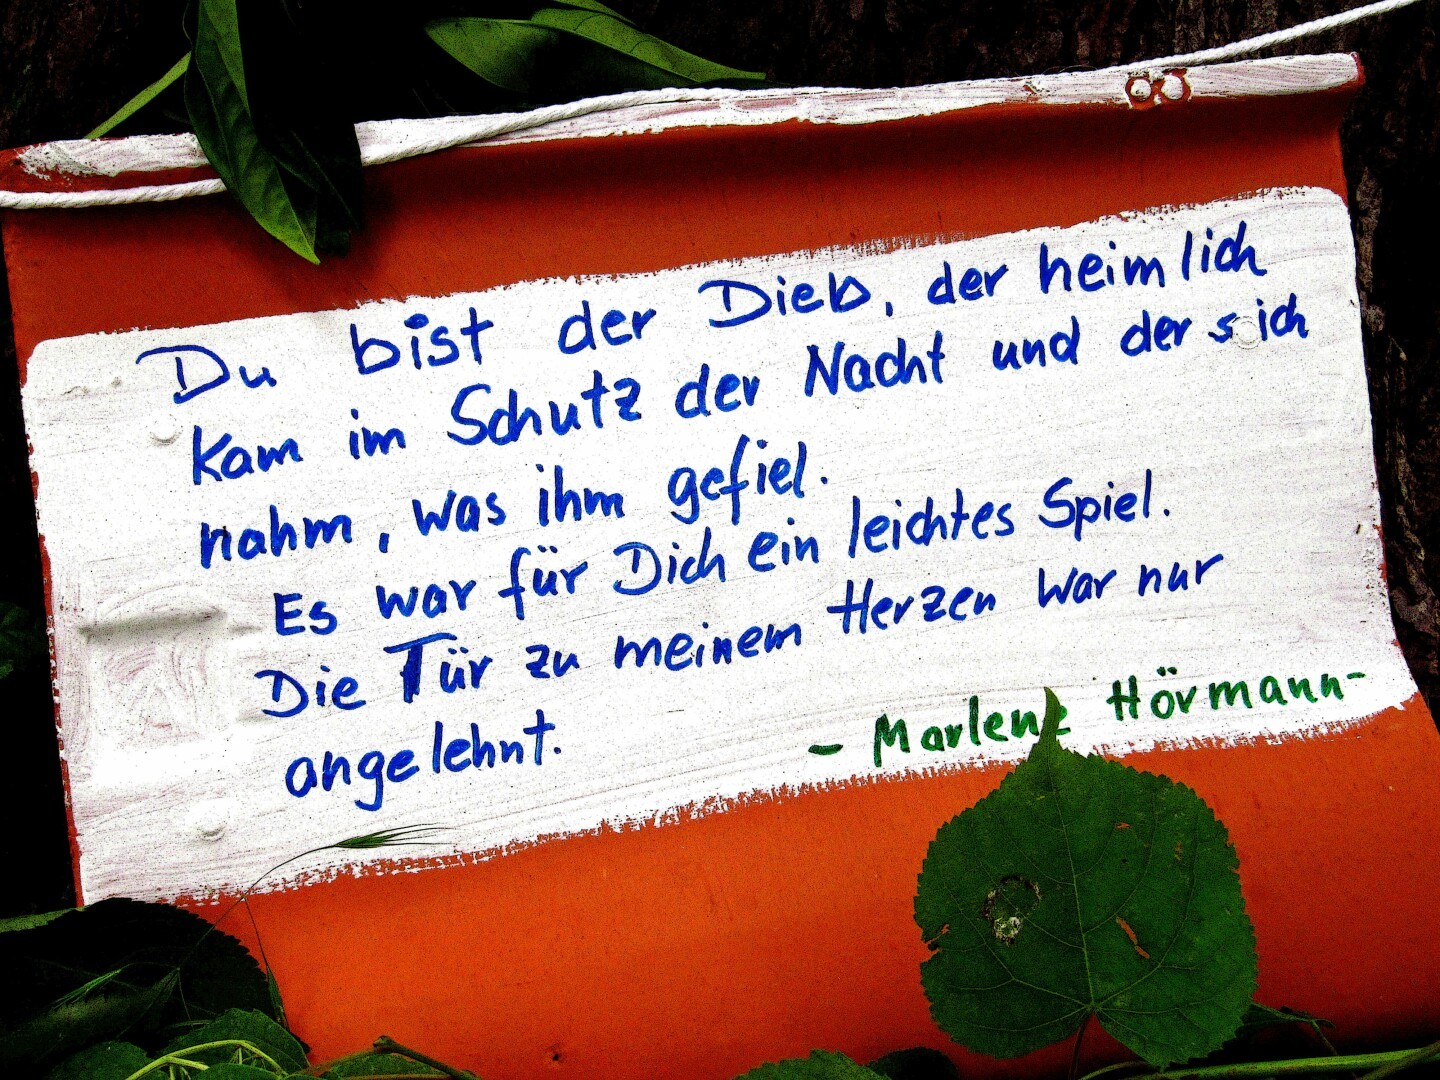 Du bist der Dieb, der heimlich
kam im Schutz der Nacht und der sich
nahm, was ihm gefiel.
Es war für Dich ein leichtes Spiel.
Die Tür zu meinem Herzen war nur
angelehnt.
- Marlene Hörmann-